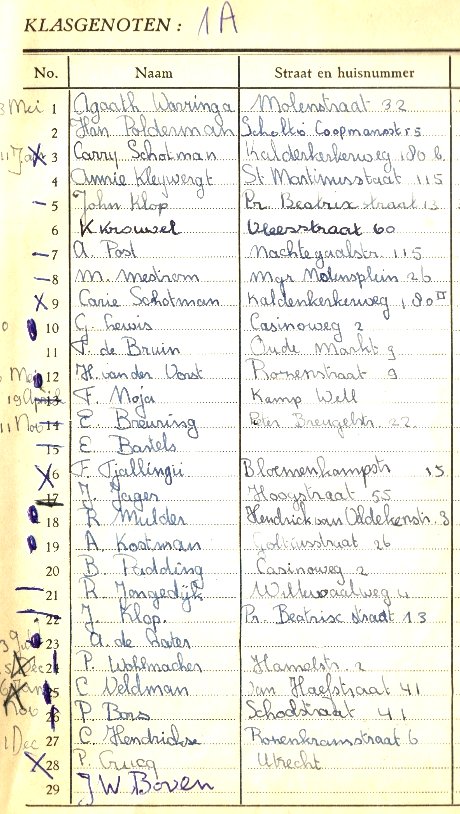 KLASGENOTEN: 1A
No. Naam Straat en huisnummer
Mei 1 Agaath Warringa Molenstraat 32
2 Han Polderman Scholtis Coopmansstr 5
11 Jan 3 Carry Schotman Kaldenkerkerweg 180 b
4 Annie Kleywergt St Martinusstaat 115
5 John Klop Pr. Beatrix straat 13
6 K Krouwel Vleesstraat 60
7 A. Post Nachtegaalstr. 115
8 M. Mestrom Mgr Nolensplein 26
9 Carie Schotman Kaldenkerkerweg 180 II
10 G. Lewis Casinoweg 2
11 P. de Bruin Oude Markt 9
Mei 12 H. van der Vorst Rozenstraat 9
19 April 13 F. Moja Kamp Well
11 Nov 14 E. Breuring Peter Breugelstr. 22
15 E Bartels
16 F. Tjallingii Bloemenkampstr 15
17 J. Jager Hoogstraat 55
18 R Mulder Hendrick van 3
19 A. Kootman Goltziusstraat 26
20 B. Pudding Casinoweg 2
21 R. Jongedijk 4
22 J. Klop. Pr. Beatrix straat 13
23 A. de Later
24 P. Wohlmacher Hamelstr. 2
Jan 25 C Veldman 41
Nov 26 P Bors Schoolstraat 41
27 C. Hendrickse Rozenkransstraat 6
1 Dec 28 P. Crucq Utrecht
29 J W Boven